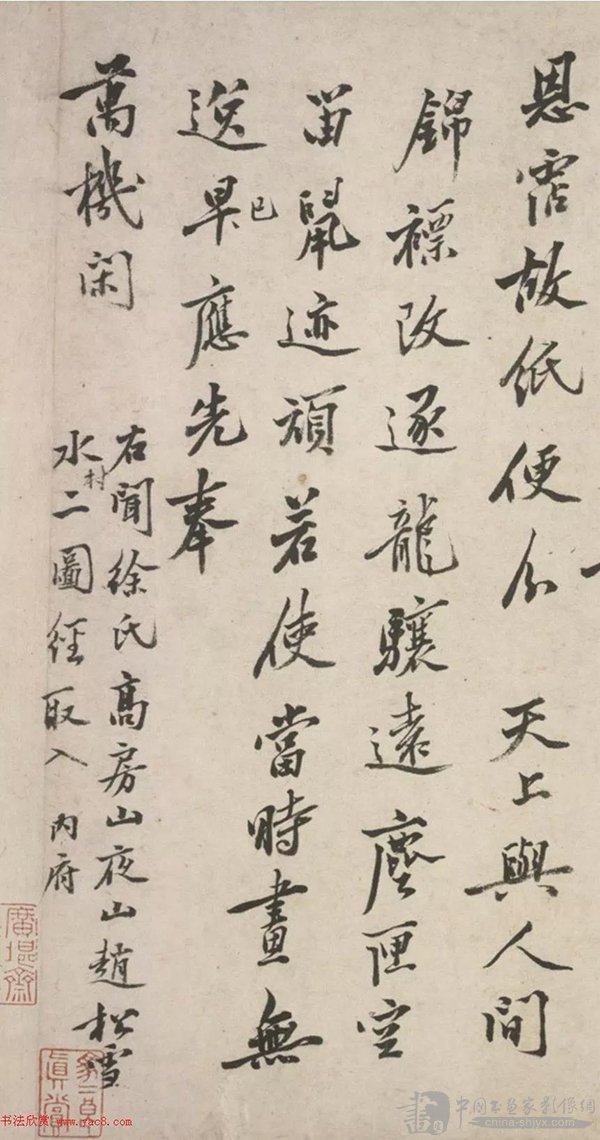 恩霑故紙便分 天上與人間
錦褾改逐龍驤遠塵匣空
留鼠迹頑若使當時畫無
逸早已應先奉
萬機閑
右聞徐氏高房山夜山趙松雪
水村二圖經取入 內府
书法欣赏 www.yac8.com
中国书画家影像网
china-shjyx.com